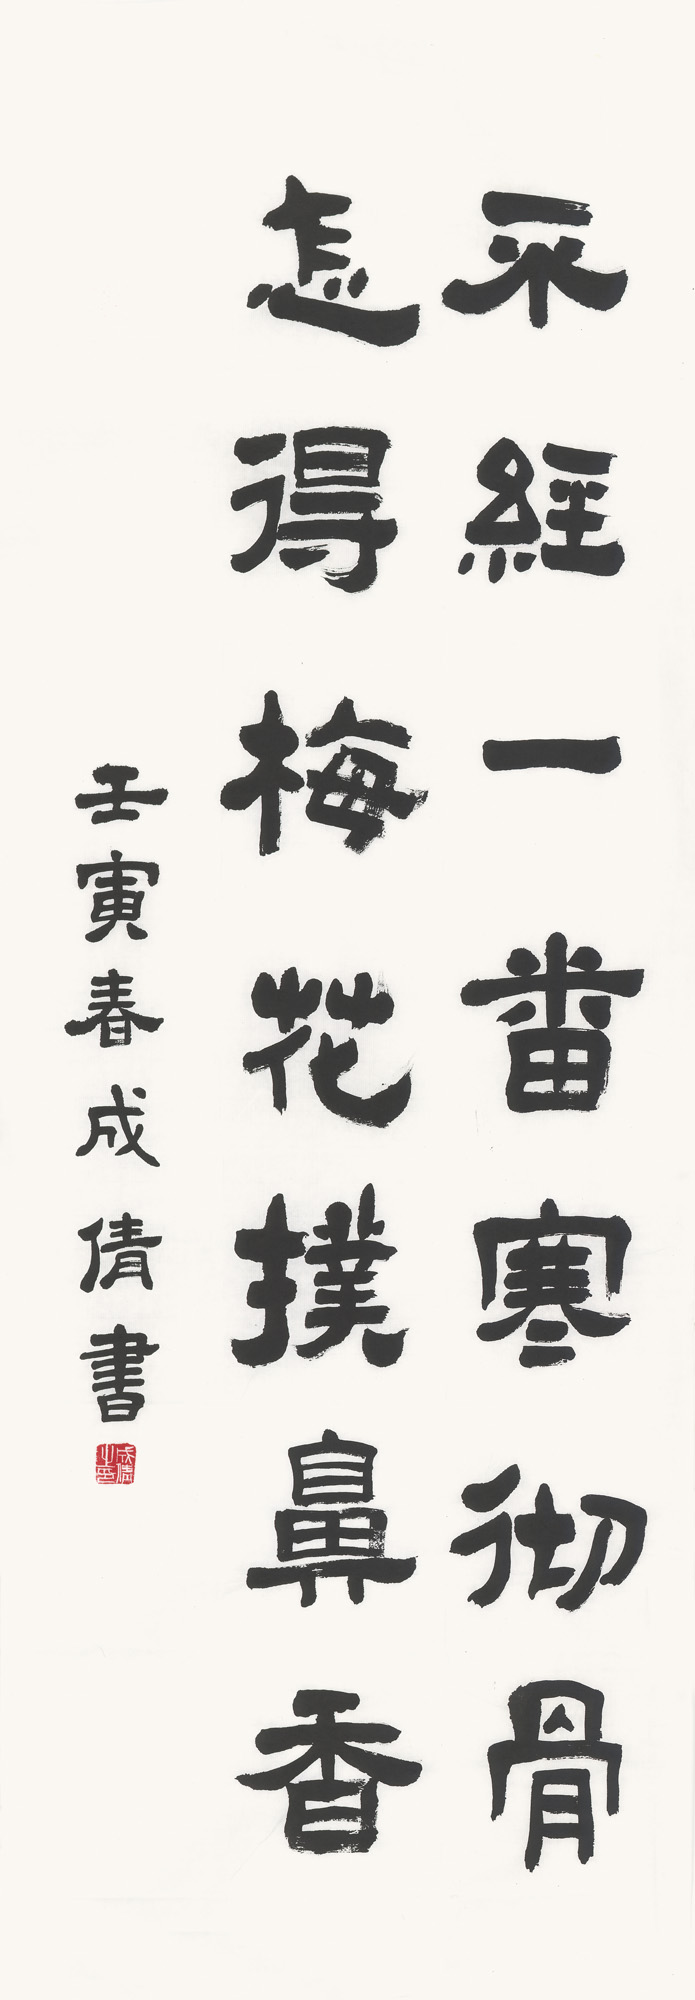 不經一番寒彻骨
怎得梅花撲鼻香
壬寅春成倩書
成倩之印